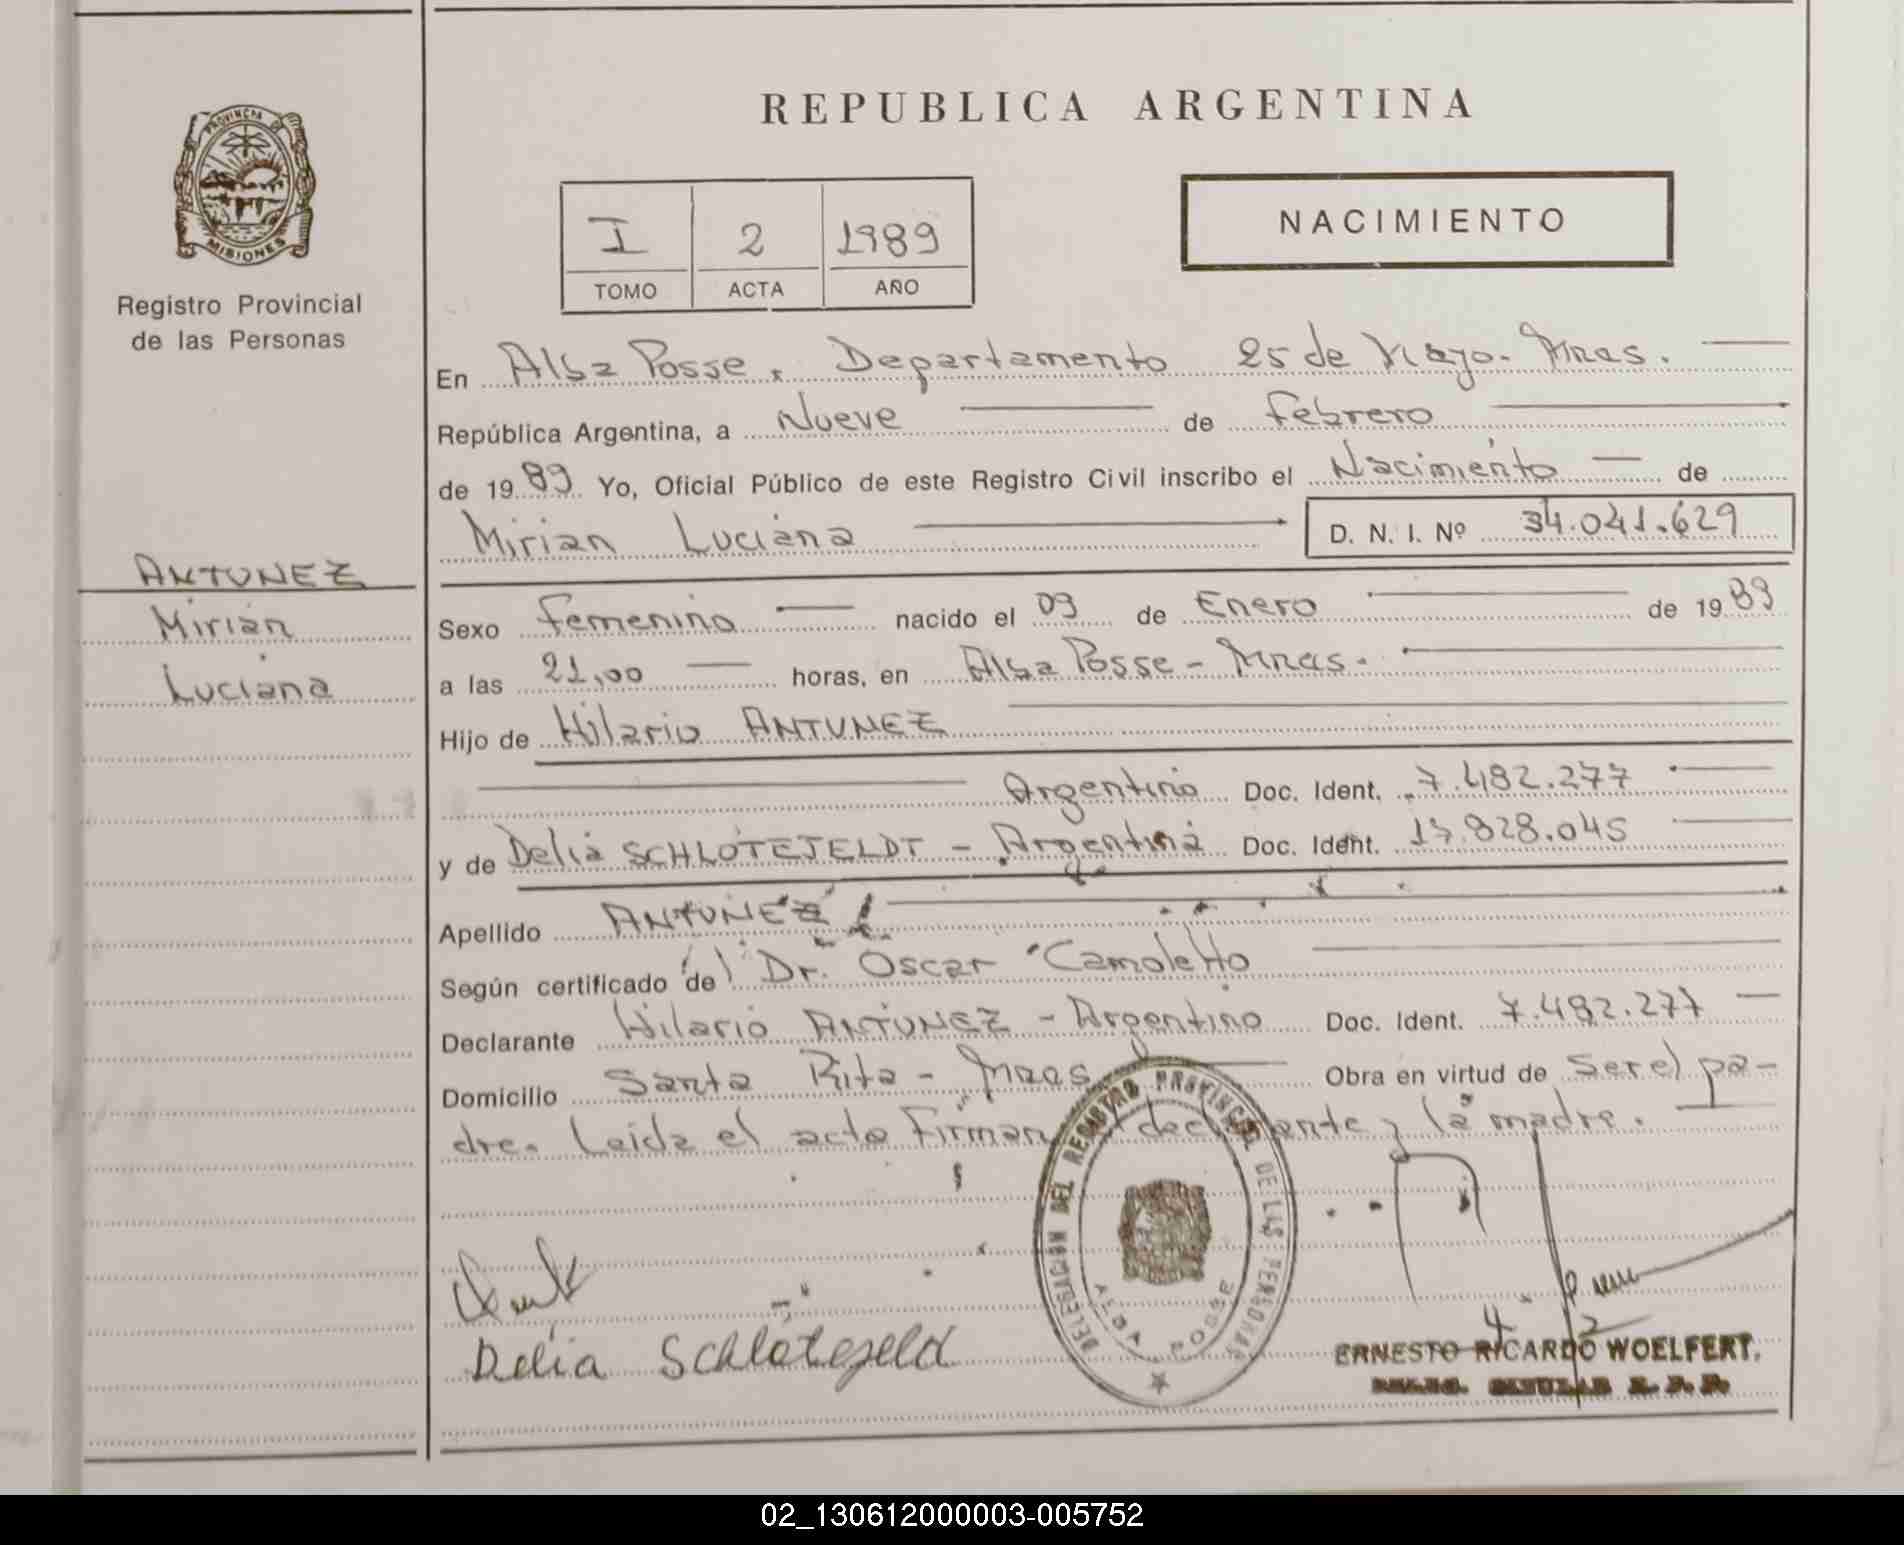 PROVINCIA DE
MISIONES
Registro Provincial
de las Personas
ANTUNEZ
Mirian
Luciana
REPUBLICA ARGENTINA
I 2 1989
TOMO ACTA AÑO
NACIMIENTO
En Alba Posse, Departamento 25 de Mayo- Mnes.
República Argentina, a Nueve de Febrero
de 1989 Yo, Oficial Público de este Registro Civil inscribo el Nacimiento de
Mirian Luciana D. N. I. Nº 34.041.629
Sexo Femenino nacido el 09 de Enero de 1989
a las 21,00 horas, en Alba Posse- Mnes.
Hijo de Hilario ANTUNEZ
Argentino Doc. Ident. 7.482.277
y de Delia SCHLOTEJELDT - Argentina Doc. Ident. 17.828.045
Apellido ANTUNEZ
Según certificado de Dr. Oscar Camoletto
Declarante Hilario ANTUNEZ - Argentino Doc. Ident. 7.482.277
Domicilio Santa Rita- Mnes Obra en virtud de Ser el pa-
dre. Leida el acta Firman declarante y la madre.
DELEGACION DEL REGISTRO PROVINCIAL DE LAS PERSONAS
ALBA POSSE
Delia Schlotejeld
ERNESTO RICARDO WOELFERT.
DELEG. TITULAR R. P. P.
02_130612000003-005752